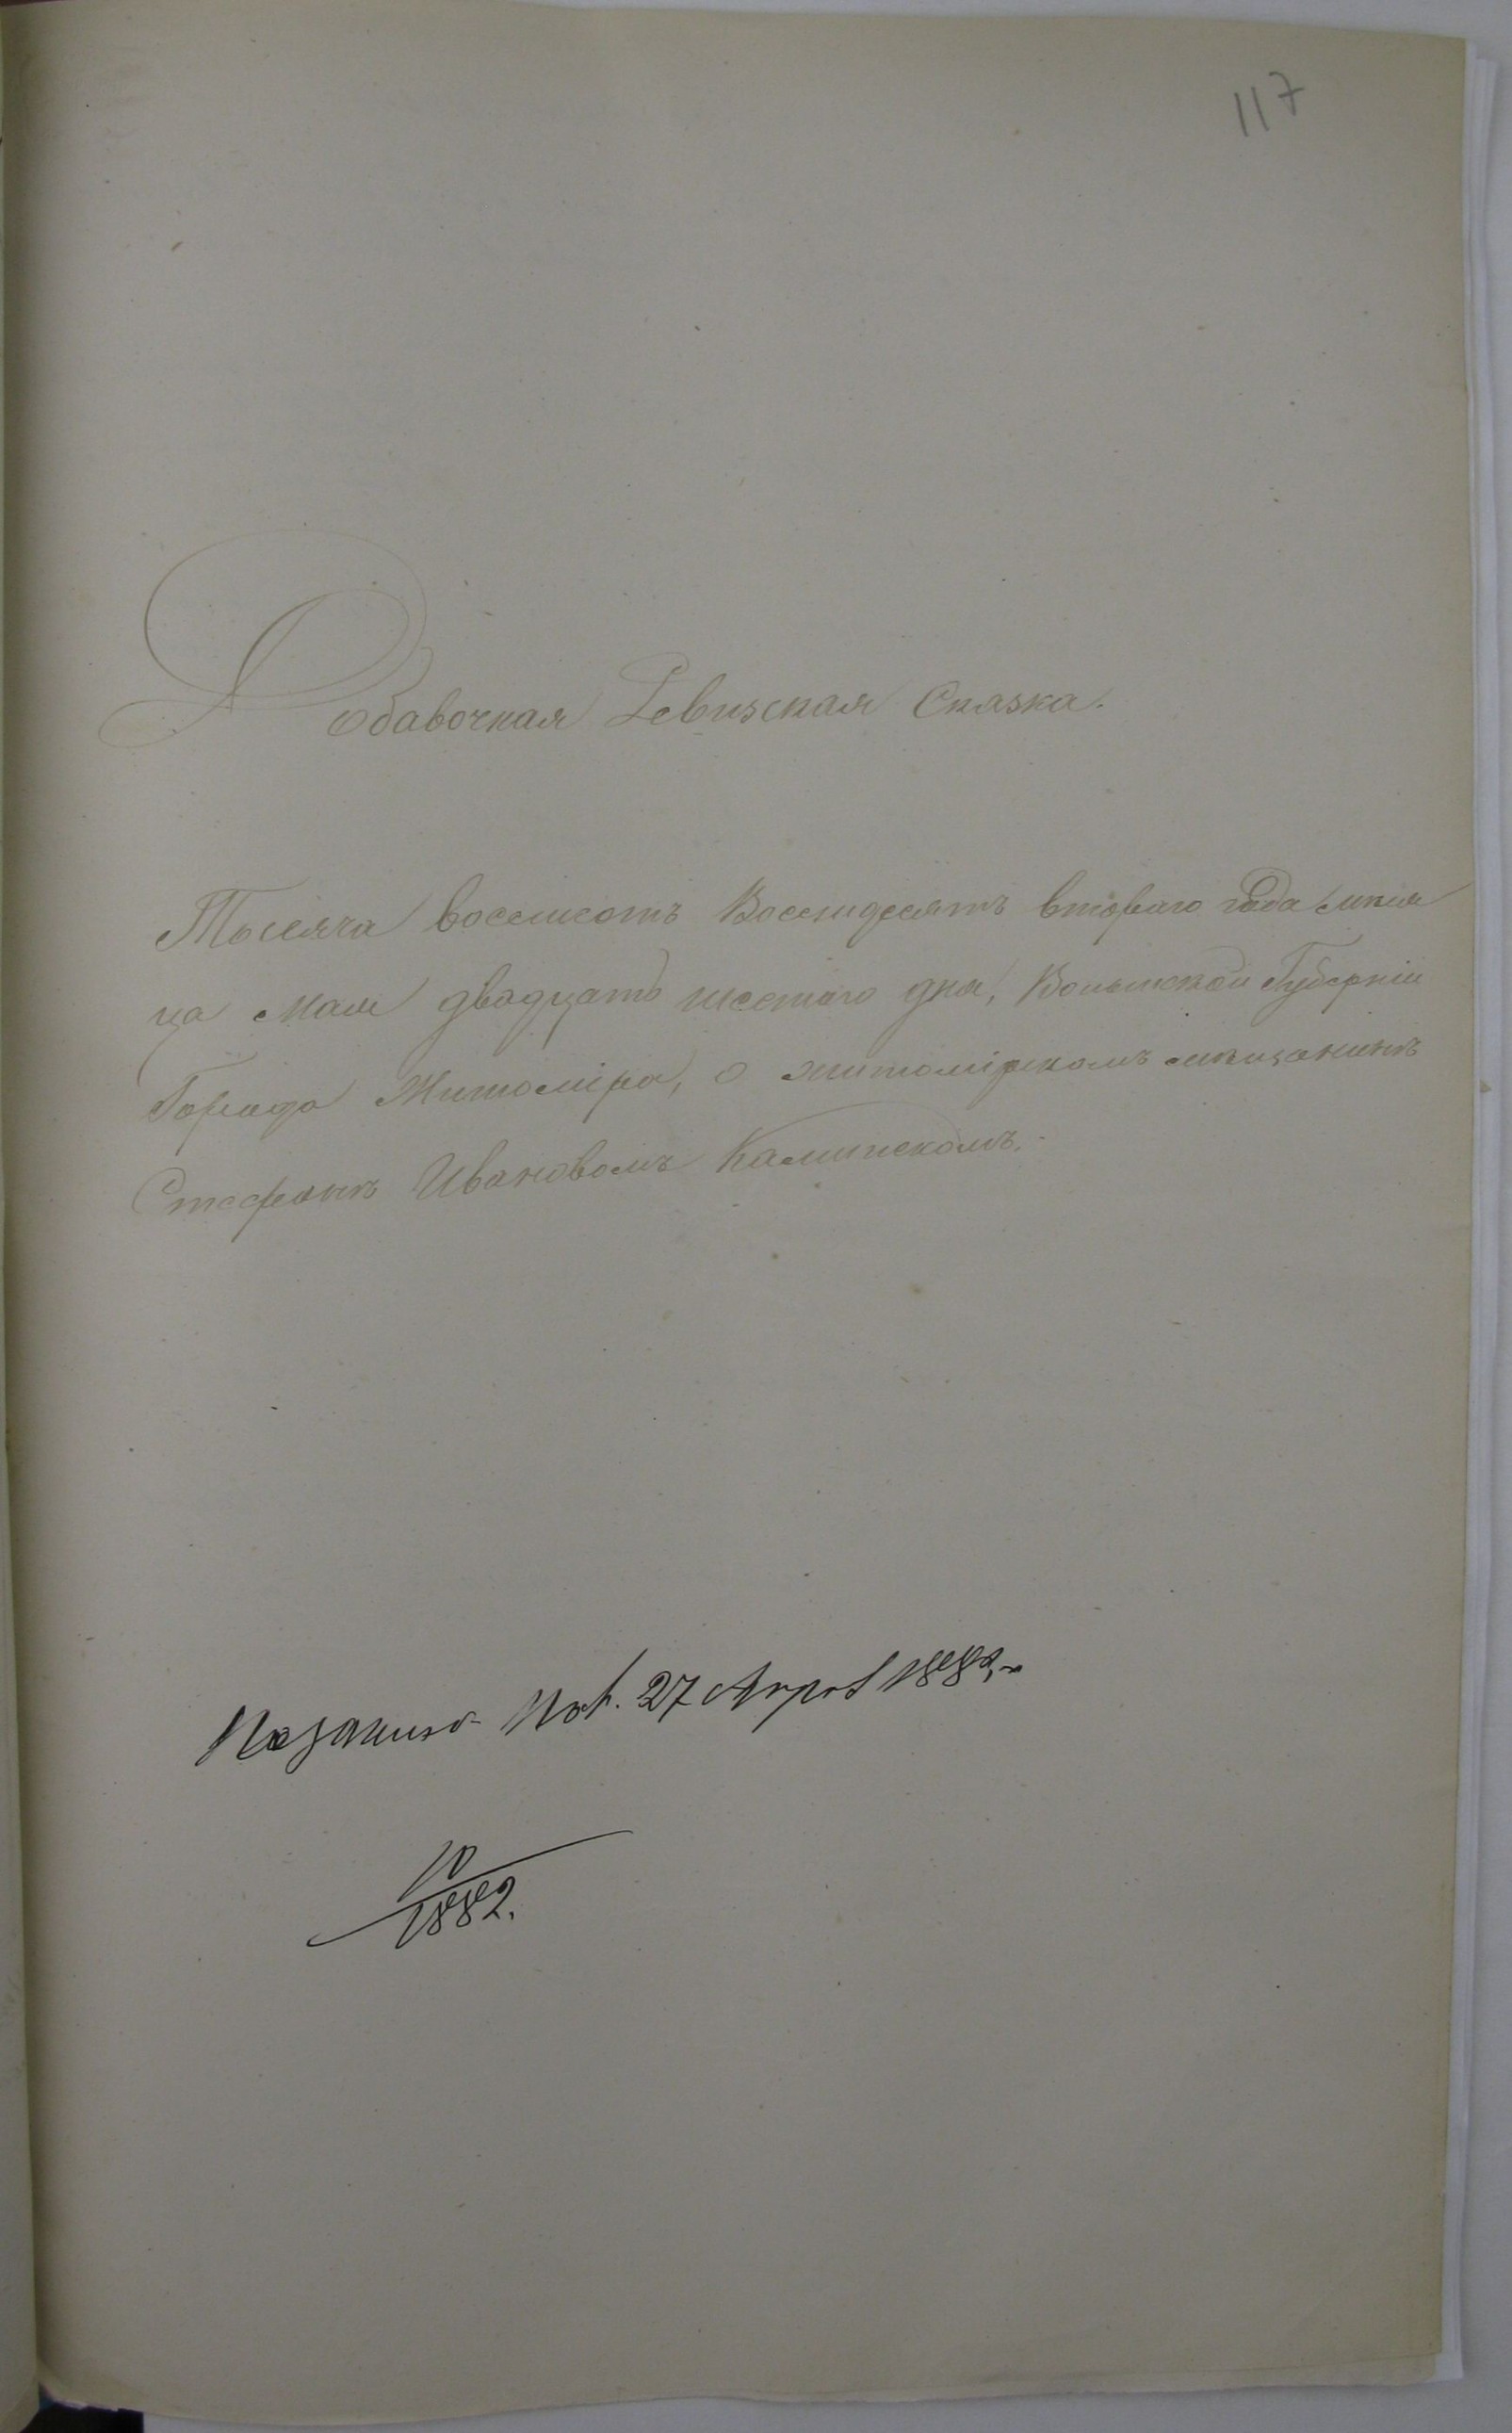 117
Добавочная Ревизская Сказка.
Тысяча восемсотъ Восемдесятъ втораго года мѣся
ца Мая двадцать шестаго дня, Волынской Губерніи
Города Житоміра, о житомірскомъ мѣщанинѣ
Стефанѣ Ивановомъ Калинскомъ.
27 1882
10
1882.